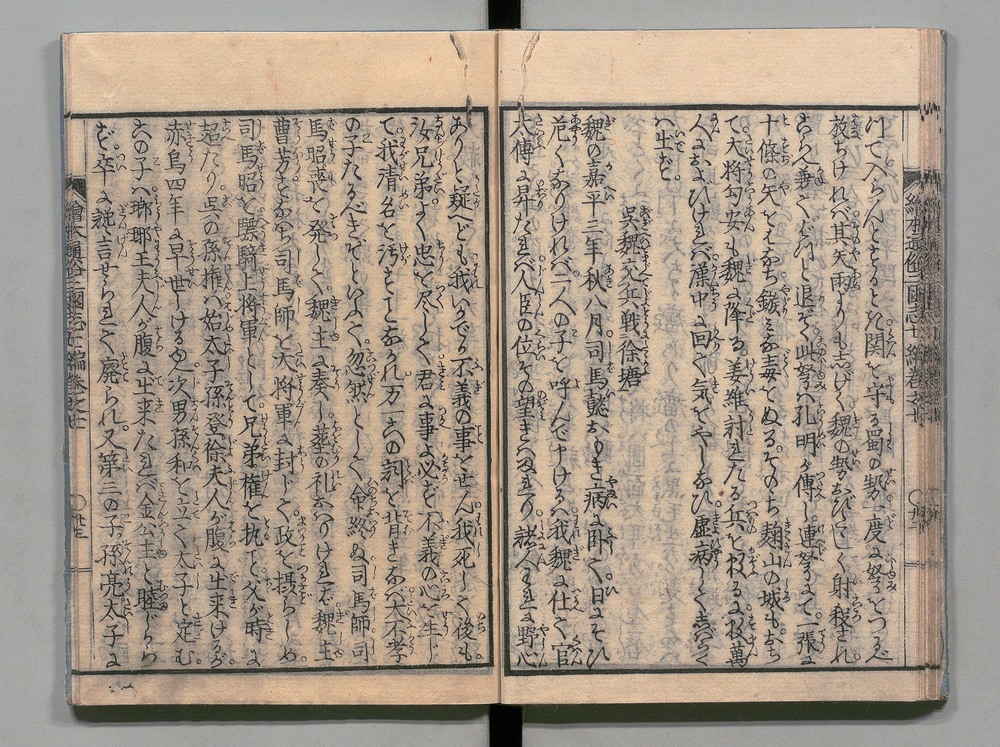 川でへらんとするとき関を守る蜀の勢一度に弩をつるべ
放ちければ其矢雨よりもしげく魏の勢おびたゞしく射殺され
さらん乗てぐんと退ぞく此弩ハ孔明が傳し連弩にて一張に
十條の矢をはなち鏃にみな毒をぬるそのち麹山の城もおち
て大将句安も魏に降る姜維討れたる兵を数るに数萬
人におよびければ漢中に回て気をやしなひ虚病してしばらく
ハ生ず
呉魏交兵戦徐塘
魏の嘉平三年秋八月司馬懿おもき病に卧て日にそひ
危くなりければ二人の子を呼んで申けるハ我魏に仕て官
太傅に昇たれバ人臣の位その望きハまれり諸人われに野心
ありと疑へども我いかでか不義の事をせん我死して後も
汝兄弟よく忠を尽して君に事よ必ず不義の心を生じ
て我清名を汚すことなかれ万一この訓を背きなバ大不孝
の子たるべきぞといふて忽然として命終ぬ司馬師司
馬昭喪を発して魏主に奏し葬の礼おハりければ魏主
曹芳すなハち司馬師を大将軍に封じて政を摂らしめ
司馬昭を驃騎上将軍として兄弟権を執て父が時に
超たり呉の孫権ハ始太子孫登徐夫人が腹に生来けるが
赤烏四年に早世しけるゆへ次男孫和を立て太子と定む
この子ハ瑯琊王夫人が腹に出来たれバ全公主と睦じから
ず卒に讒言せられて廃られ又第三の子孫亮太子に
繪本通俗三國志七編巻之七
繪本通俗三國志七編巻之七